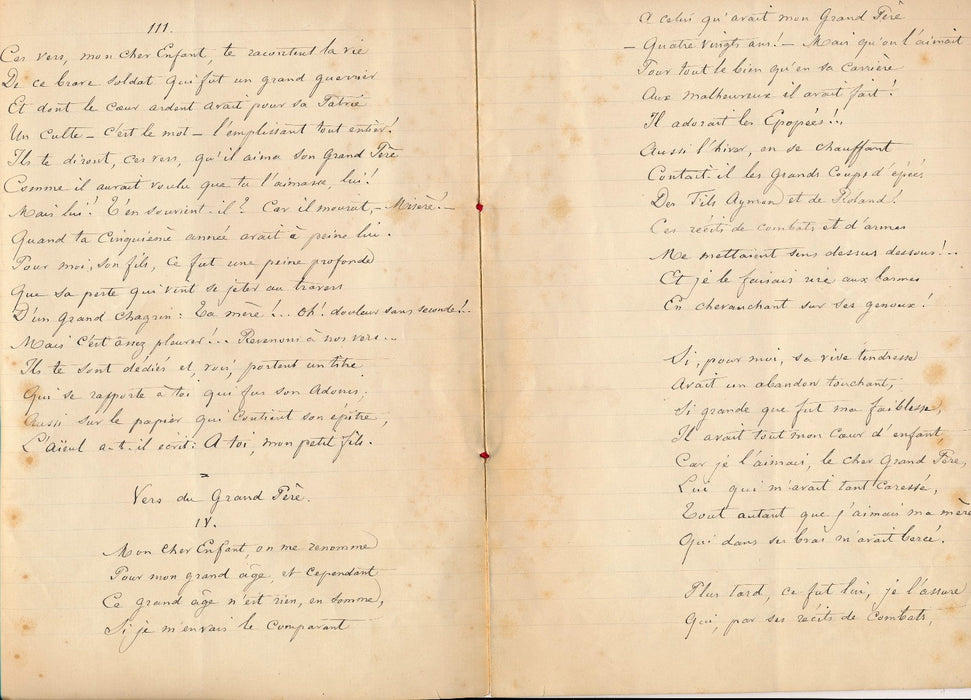 111.
Ces vers, mon cher Enfant, te racontent la vie
De ce brave soldat qui fut un grand guerrier
Et dont le cœur ardent avait pour sa Patrie
Un culte – c'est le mot – l'emplissant tout entier!
Ils te diront, ces vers, qu'il aima son Grand Père
Comme il aurait voulu que tu l'aimasse, lui!
Mais lui! T'en souvient-il? Car il mourut, – Misère! –
Quand ta Cinquième année avait à peine lui.
Pour moi, son fils, ce fut une peine profonde
Que sa perte qui vint se jeter au travers
D'un Grand Chagrin: Ta mère!... Oh! douleur sans seconde!..
Mais c'est assez pleurer!... Revenons à nos vers...
Ils te sont dédiés et, vois, portent un titre
Qui se rapporte à toi qui fus son Adonis;
Aussi sur le papier qui Contient son épitre,
L'Aïeul a-t-il écrit: A toi, mon petit fils.
Vers du Grand Père.
IV.
Mon Cher Enfant, on me renomme
Pour mon grand âge, et Cependant
Ce grand âge n'est rien, en somme,
Si je m'en vais le Comparant
A celui qu'avait mon Grand Père
– Quatre Vingts ans! – Mais qu'on l'aimait
Pour tout le bien qu'en sa Carrière
Aux malheureux il avait fait!
Il adorait les Epopées!..
Aussi l'hiver, en se chauffant
Contait-il les Grands Coups d'épées
Des Fils Aymon et de Roland!
Ces récits de combats et d'armes
Me mettaient sens dessus dessous!..
Et je le faisais rire aux larmes
En chevauchant sur ses genoux!
Si, pour moi, sa vive tendresse
Avait un abandon touchant,
Si grande que fut ma faiblesse,
Il avait tout mon Cœur d'enfant,
Car je l'aimais, le cher Grand Père,
Lui qui m'avait tant Caressé,
Tout autant que j'aimais ma mère
Qui dans ses bras m'avait bercé.
Plus tard, ce fut lui, je l'assure
Qui, par ses récits de Combats,